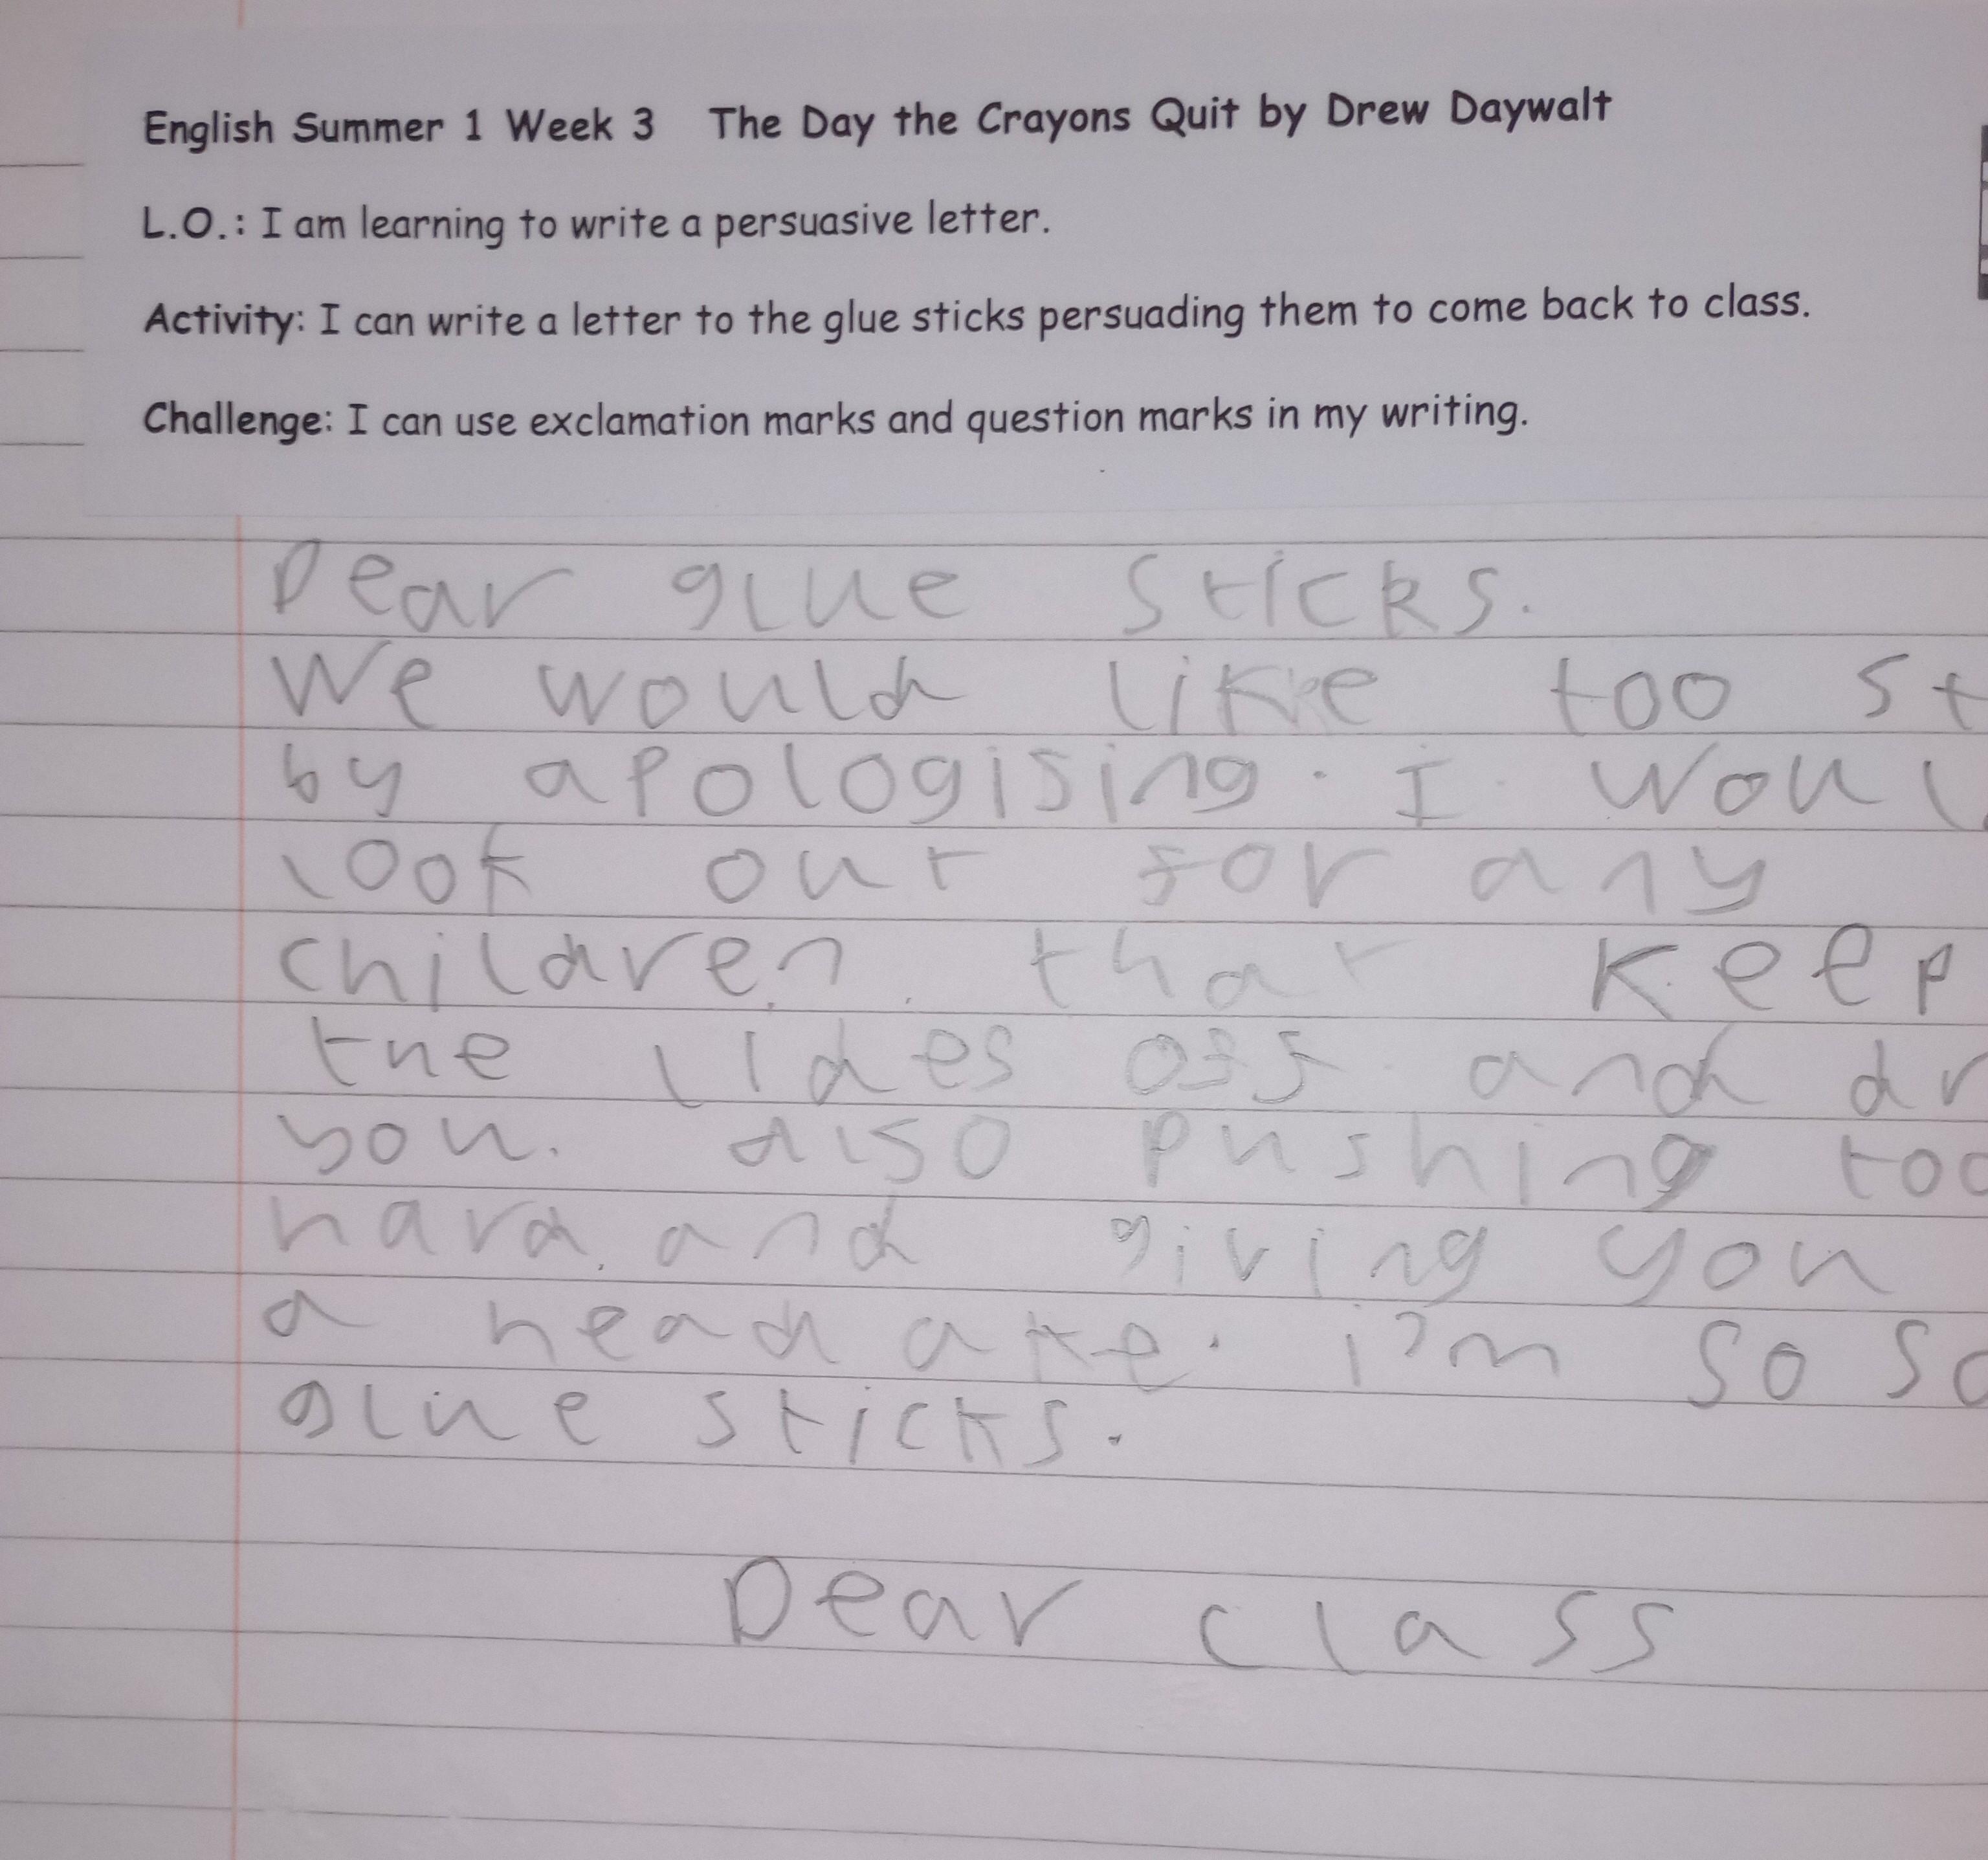 English Summer 1 Week 3 The Day the Crayons Quit by Drew Daywalt
L.O.: I am learning to write a persuasive letter.
Activity: I can write a letter to the glue sticks persuading them to come back to class.
Challenge: I can use exclamation marks and question marks in my writing.
Dear glue sticks.
We would like too
by apologising. I
look out for any
children that keep
the lides off and
you. also pushing too
hard and giving you
a headake. i'm so
glue sticks.
Dear class